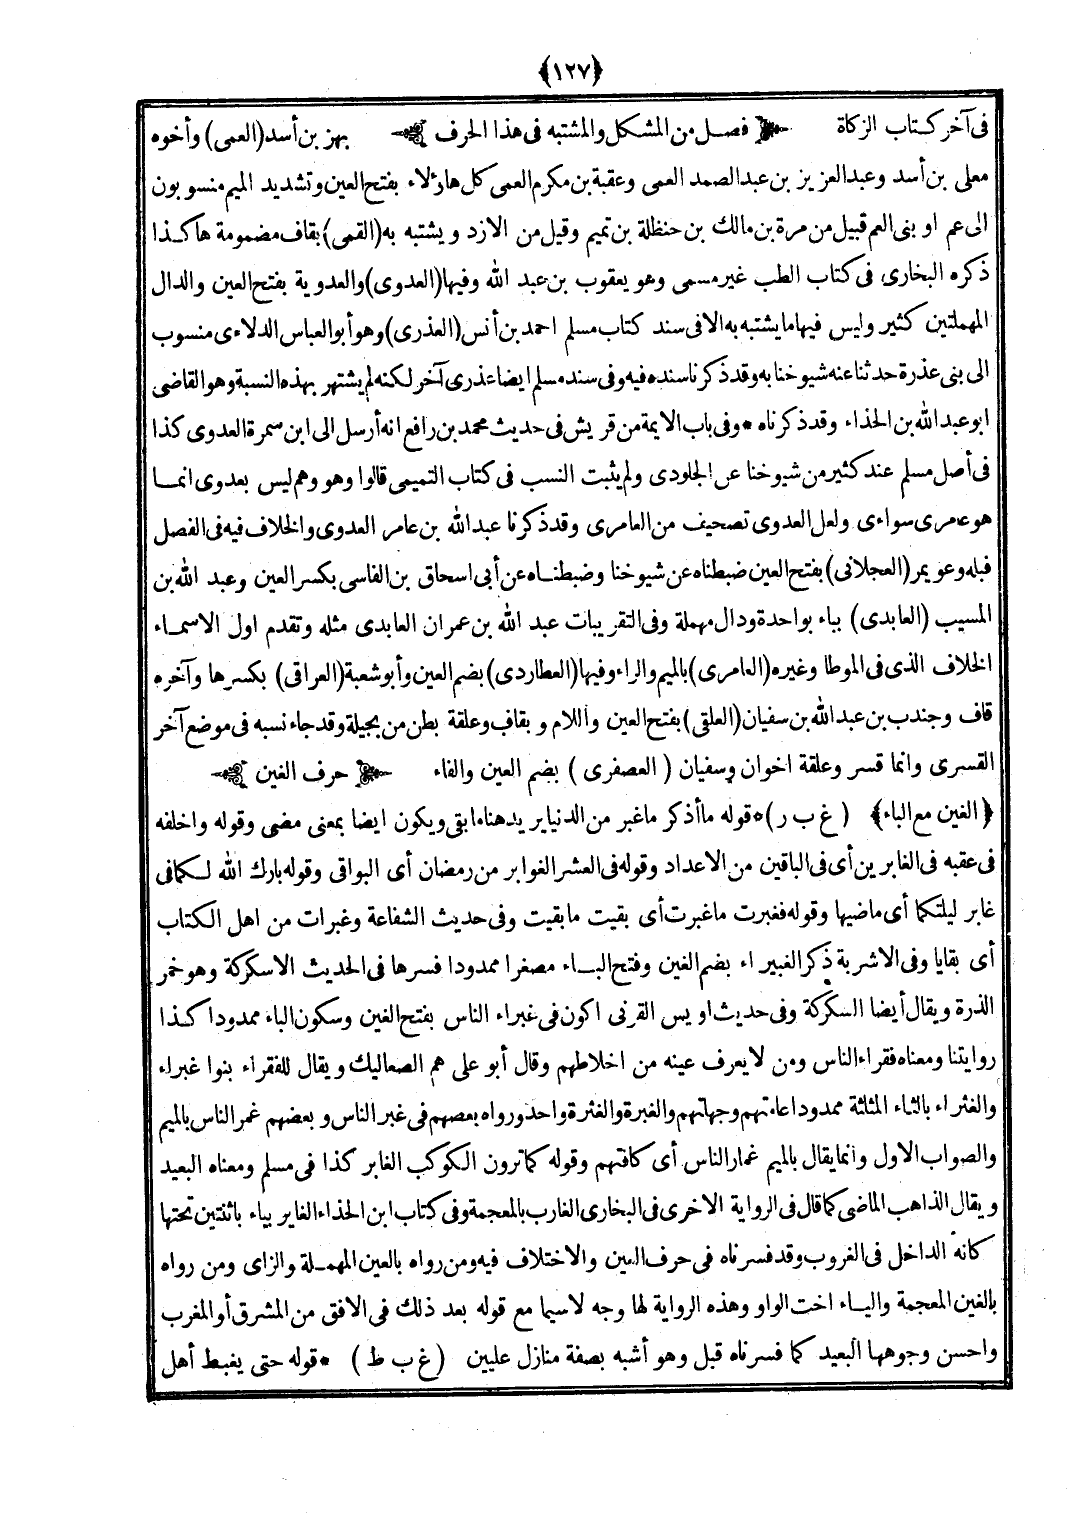 ﴿١٢٧﴾
فى آخر كتاب الزكاة فصل من المشكل والمشتبه فى هذا الحرف بهز بن أسد (العمى) وأخوه
معلى بن أسد وعبد العزيز بن عبد الصمد العمى وعقبة بن مكرم العمى كل هاؤلاء بفتح العين وتشديد الميم منسوبون
الى عم او بنى العم قبيل من مرة بن مالك بن حنظلة بن تميم وقيل من الازد ويشتبه به (القمى) بقاف مضمومة هاكذا
ذكره البخارى فى كتاب الطب غير مسمى وهو يعقوب بن عبد الله وفيها (العدوى) والعدوية بفتح العين والدال
المهملتين كثير وليس فيها ما يشتبه به الا فى سند كتاب مسلم احمد بن أنس (العذرى) وهو أبو العباس الدلاءى منسوب
الى بنى عذرة حدثنا عنه شيوخنا به وقد ذكرنا سنده فيه وفى سند مسلم ايضا عذرى آخر لكنه لم يشتهر بهذه النسبة وهو القاضى
ابو عبد الله بن الحذاء وقد ذكرناه * وفى باب الايمة من قريش فى حديث محمد بن رافع انه أرسل الى ابن سمرة العدوى كذا
فى أصل مسلم عند كثير من شيوخنا عن الجلودى ولم يثبت النسب فى كتاب التميمى قالوا وهو وهم ليس بعدوى انما
هو عامرى سواءى ولعل العدوى تصحيف من العامرى وقد ذكرنا عبد الله بن عامر العدوى والخلاف فيه فى الفصل
قبله وعويمر (العجلانى) بفتح العين ضبطناه عن شيوخنا وضبطناه عن أبى اسحاق بن الفاسى بكسر العين وعبد الله بن
المسيب (العابدى) بباء بواحدة ودال مهملة وفى التقريبات عبد الله بن عمران العابدى مثله وتقدم اول الاسماء
الخلاف الذى فى الموطا وغيره (العامرى) بالميم والراء وفيها (العطاردى) بضم العين وأبو شعبة (العراقى) بكسرها وآخره
قاف وجندب بن عبد الله بن سفيان (العلقى) بفتح العين واللام وبقاف وعلقة بطن من بجيلة وقد جاء نسبه فى موضع آخر
القسرى وانما قسر وعلقة اخوان وسفيان (العصفرى) بضم العين والفاء حرف الغين
﴿الغين مع الباء﴾ (غ ب ر) * قوله ما أذكر ما غبر من الدنيا يريد هنا ما بقى ويكون ايضا بمعنى مضى وقوله واخلفه
فى عقبه فى الغابرين أى فى الباقين من الاعداد وقوله فى العشر الغوابر من رمضان أى البواقى وقوله بارك الله لكما فى
غابر ليلتكما أى ماضيها وقوله فغبرت ما غبرت أى بقيت ما بقيت وفى حديث الشفاعة وغبرات من اهل الكتاب
أى بقايا وفى الاشربة ذكر الغبيراء بضم الغين وفتح الباء مصغرا ممدودا فسرها فى الحديث الاسكركة وهو خمر
الذرة ويقال أيضا السكركة وفى حديث اويس القرنى اكون فى غبراء الناس بفتح الغين وسكون الباء ممدودا كذا
روايتنا ومعناه فقراء الناس ومن لا يعرف عينه من اخلاطهم وقال أبو على هم الصعاليك ويقال للفقراء بنوا غبراء
والغثراء بالثاء المثلثة ممدودا عامتهم وجهلتهم والغبرة والغثرة واحد ورواه بعضهم فى غبر الناس وبعضهم غمر الناس بالميم
والصواب الاول وانما يقال بالميم غمار الناس أى كافتهم وقوله كما ترون الكوكب الغابر كذا فى مسلم ومعناه البعيد
ويقال الذاهب الماضى كما قال فى الرواية الاخرى فى البخارى الغارب بالمعجمة وفى كتاب ابن الحذاء الغاير بياء باثنتين تحتها
كانه الداخل فى الغروب وقد فسرناه فى حرف العين والاختلاف فيه ومن رواه بالعين المهملة والزاى ومن رواه
بالغين المعجمة والياء اخت الواو وهذه الرواية لها وجه لاسيما مع قوله بعد ذلك فى الافق من المشرق أو المغرب
واحسن وجوهها البعيد كما فسرناه قبل وهو أشبه بصفة منازل عليين (غ ب ط) * قوله حتى يغبط أهل